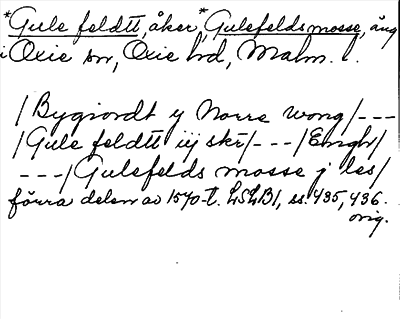 *Gule feldtt, åker, *Gulefelds mosse, äng
i Oxie sn, Oxie hd, Malm. l.
/Bygiordt y Norre wong/---
/Gule feldtt iij skr/---/Engh/
---/Gulefelds mosse j les/
förra delen av 1570-t. LSLB1, ss. 435, 436.
orig.